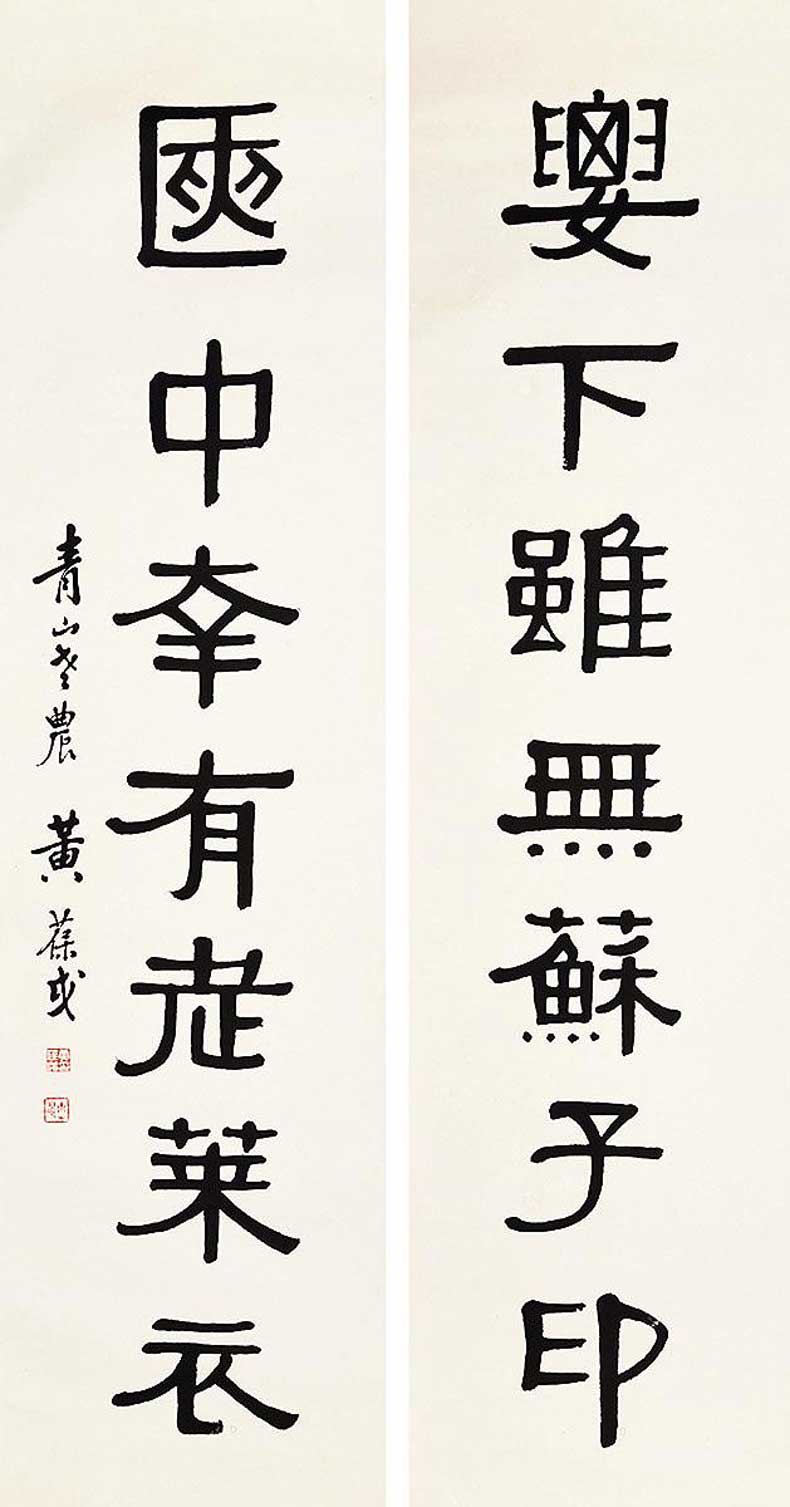 要下雖無蘇子印
匧中幸有老萊衣
青山老農 黃葆戉